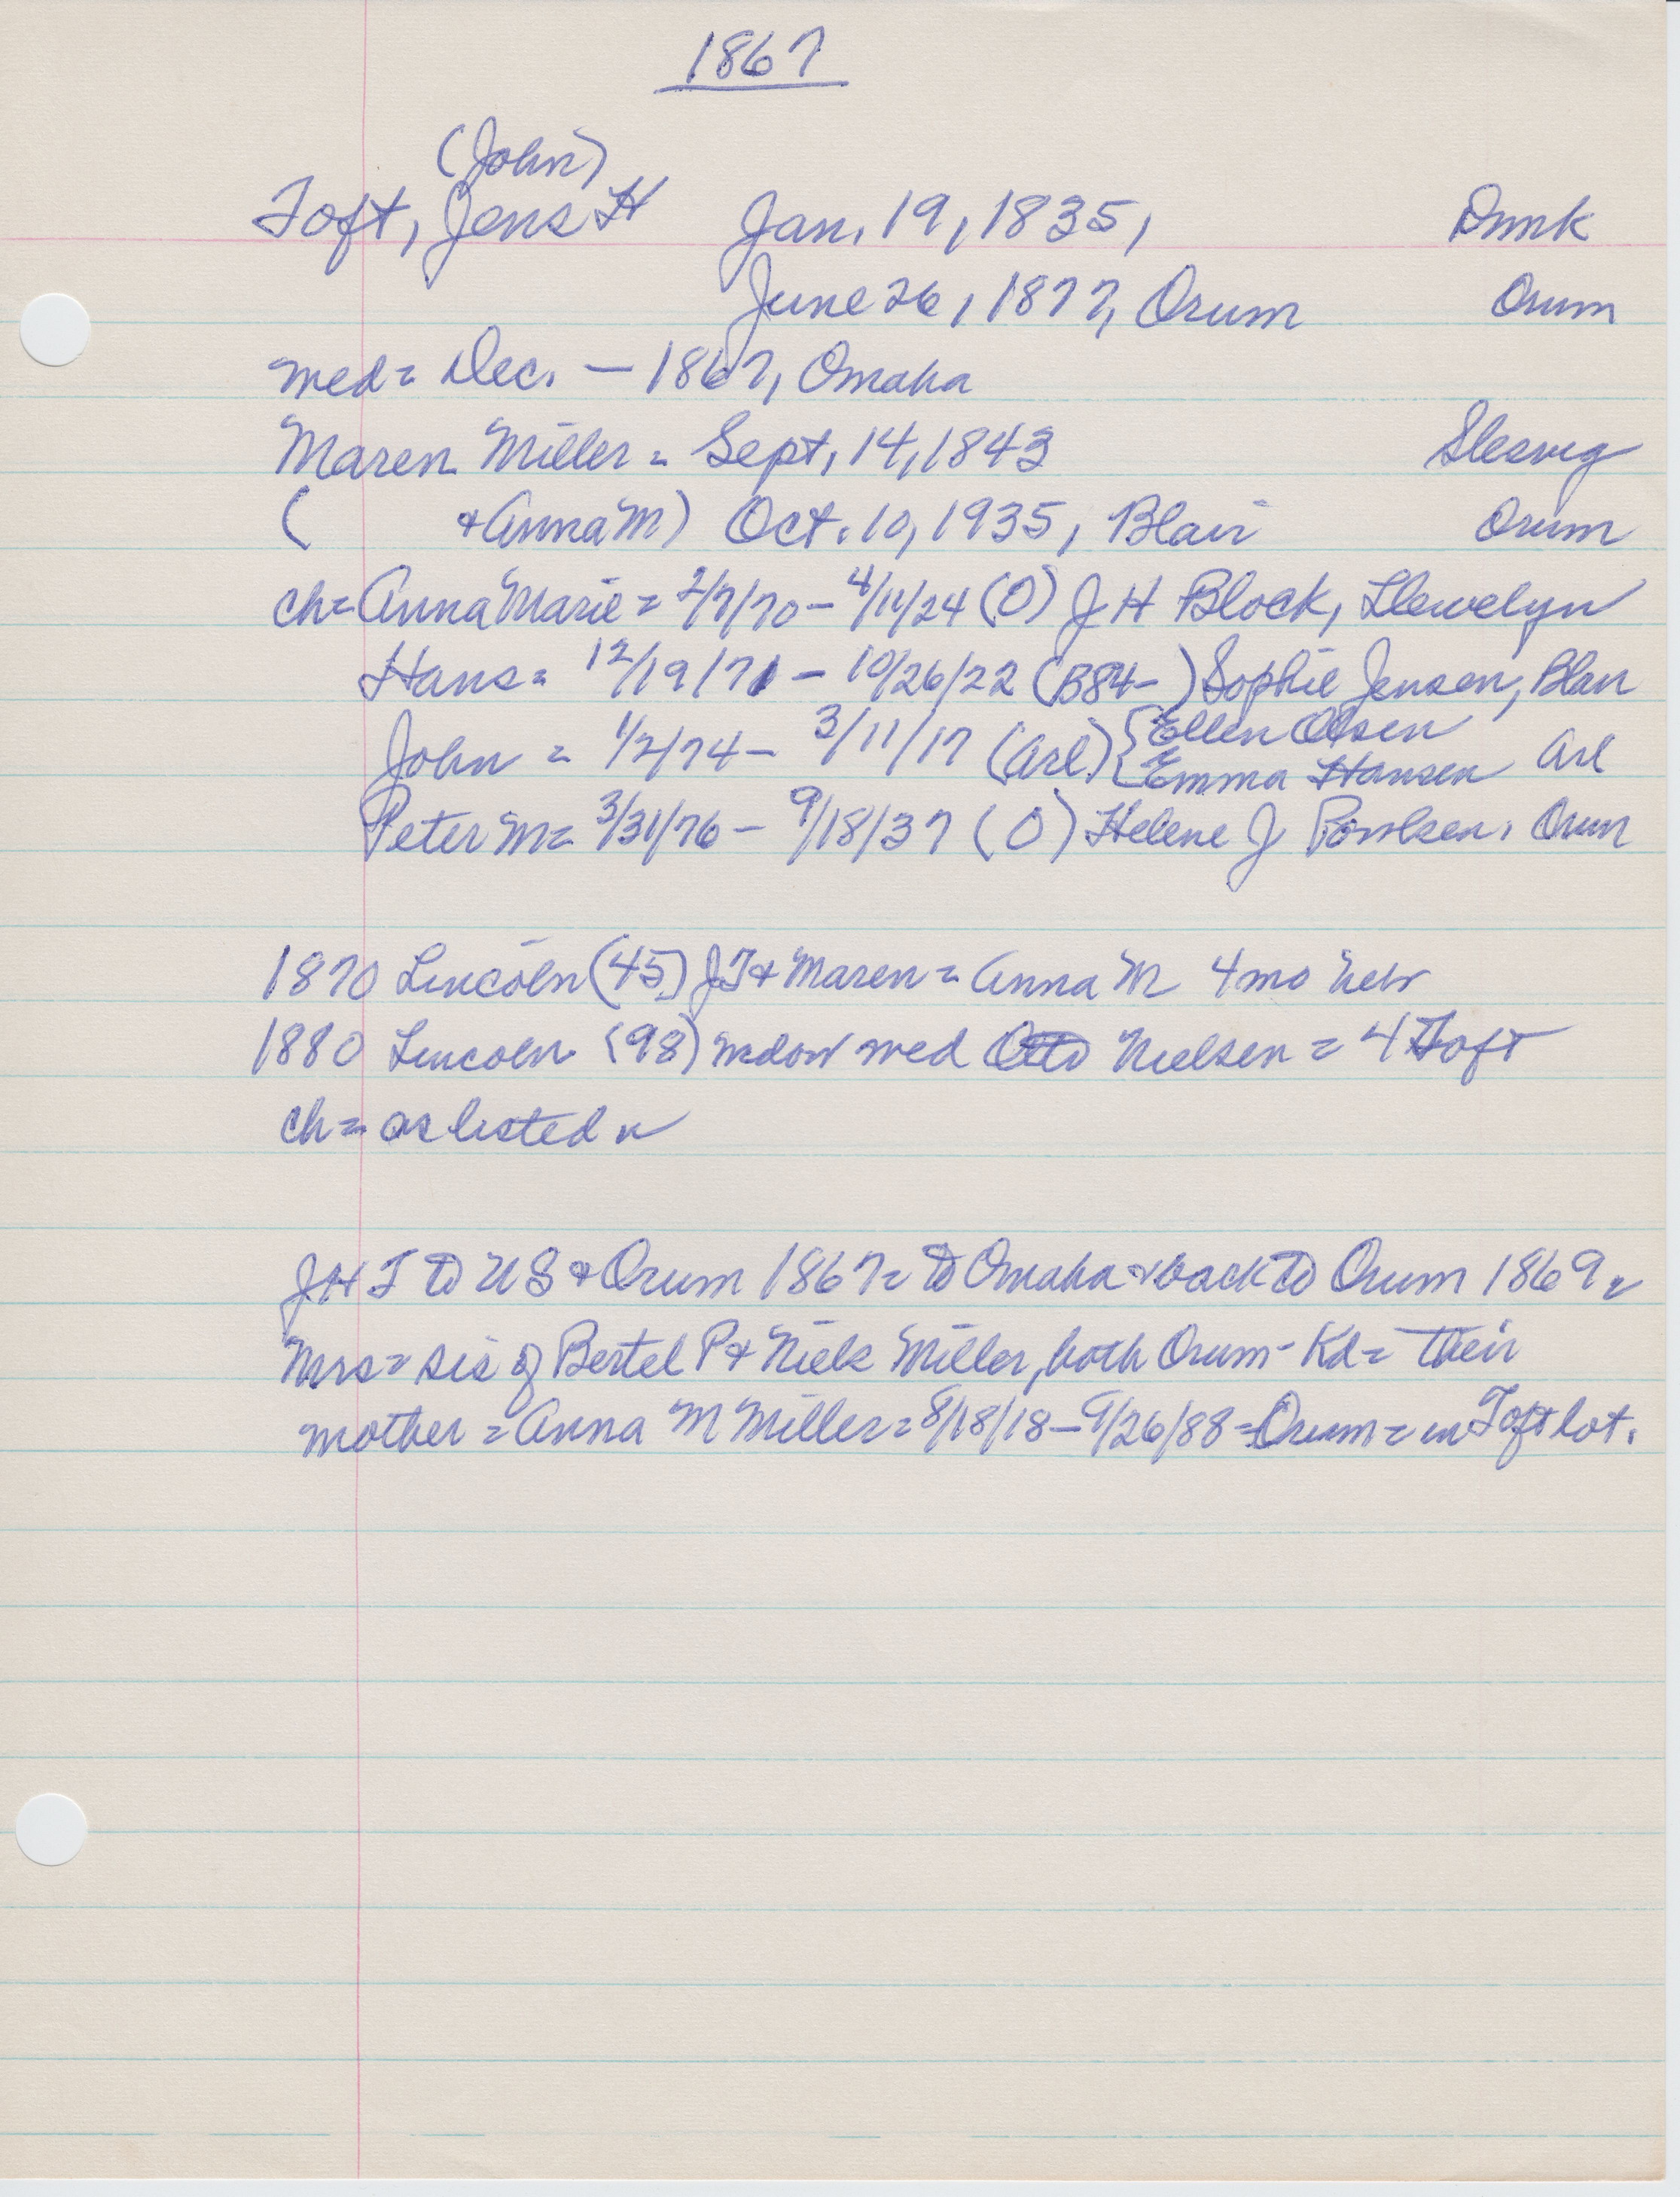 1867
(John)
Toft, Jens H Jan. 19, 1835, Dnmk
June 26, 1877, Orum Orum
med = Dec. — 1867, Omaha
Maren Miller = Sept. 14, 1843 Slesvig
( + Anna M) Oct. 10, 1935, Blair Orum
ch = Anna Marie = 2/7/70 - 4/11/24 (O) J H Block, Llewelyn
Hans = 12/19/71 - 10/26/22 (B84- ) Sophie Jensen, Blair
John = 1/2/74 - 3/11/17 (Arl) { Ellen Olsen
{ Emma Hansen Arl
Peter M = 3/31/76 - 9/18/37 (O) Helene J Poulsen, Orum
1870 Lincoln (45) JT + Maren = Anna M 4 mo Nebr
1880 Lincoln (98) widow med Otto Nielsen = 4 Toft
ch = as listed
J H T to US + Orum 1867 = to Omaha + back to Orum 1869
Mrs = sis of Bertel P + Niels Miller, both Orum - Kd = Their
mother = Anna M Miller = 8/18/18 - 9/26/88 = Orum = in Toft lot.